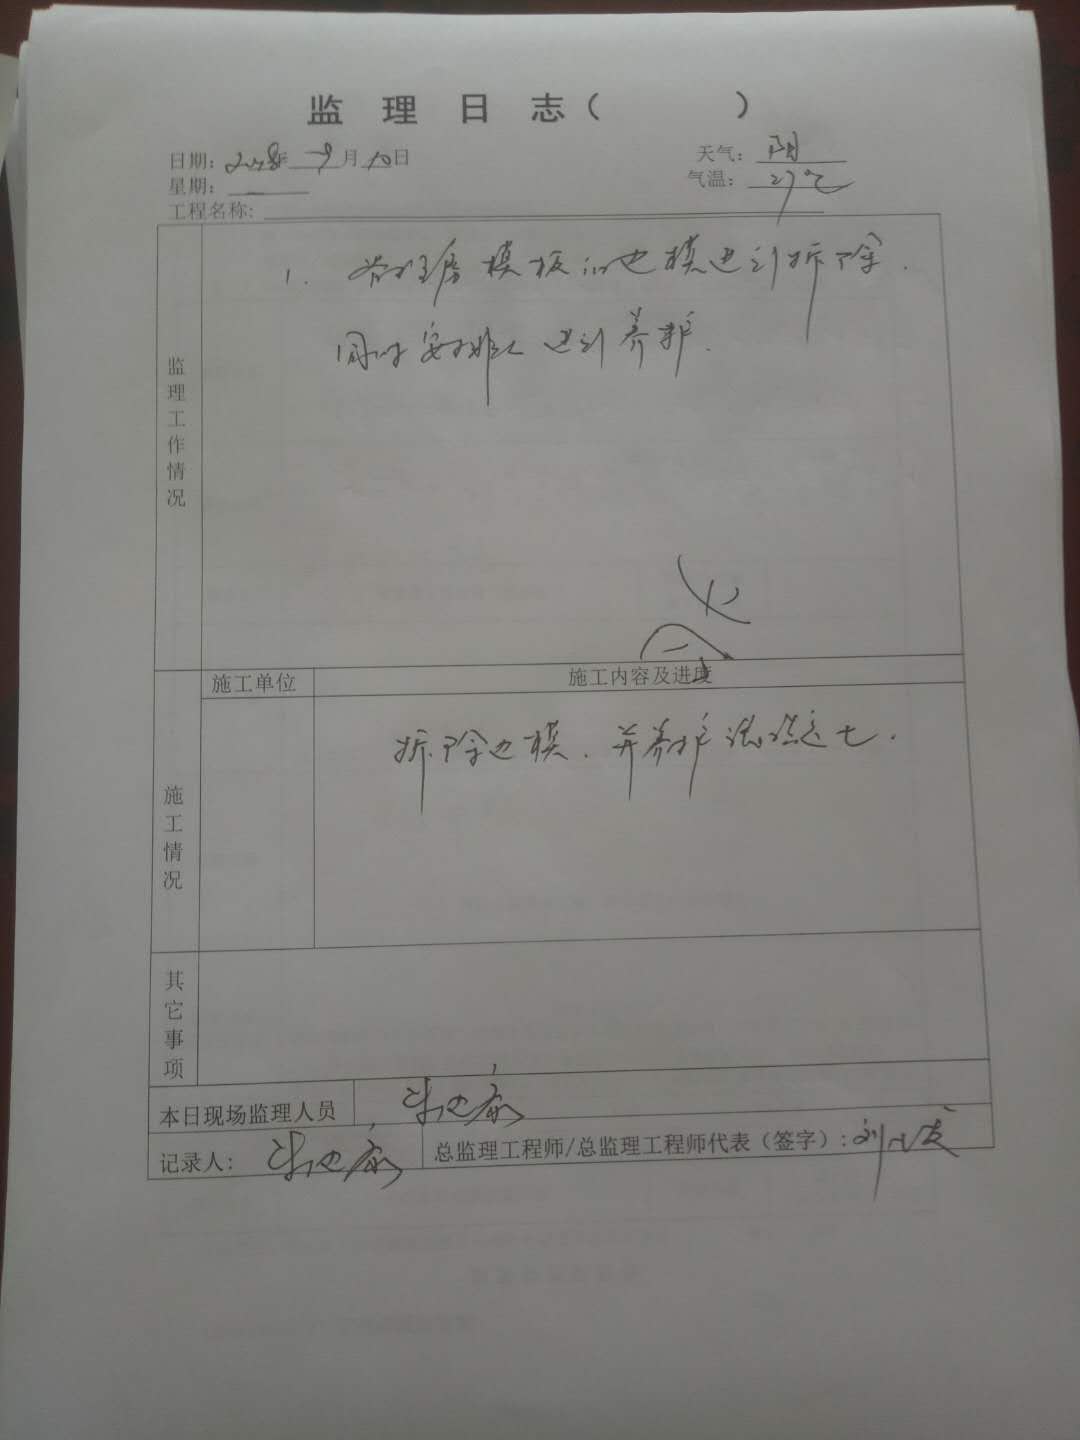 监 理 日 志（ ）
日期：2018年 9月10日
天气：阴
星期：
气温：27℃
工程名称：
监理工作情况
1. 模板的边模进行拆除.
同时安排人进行养护.
施工单位
施工内容及进度
施工情况
拆除边模.并养护混凝土.
其它事项
本日现场监理人员
记录人：
总监理工程师/总监理工程师代表（签字）：刘